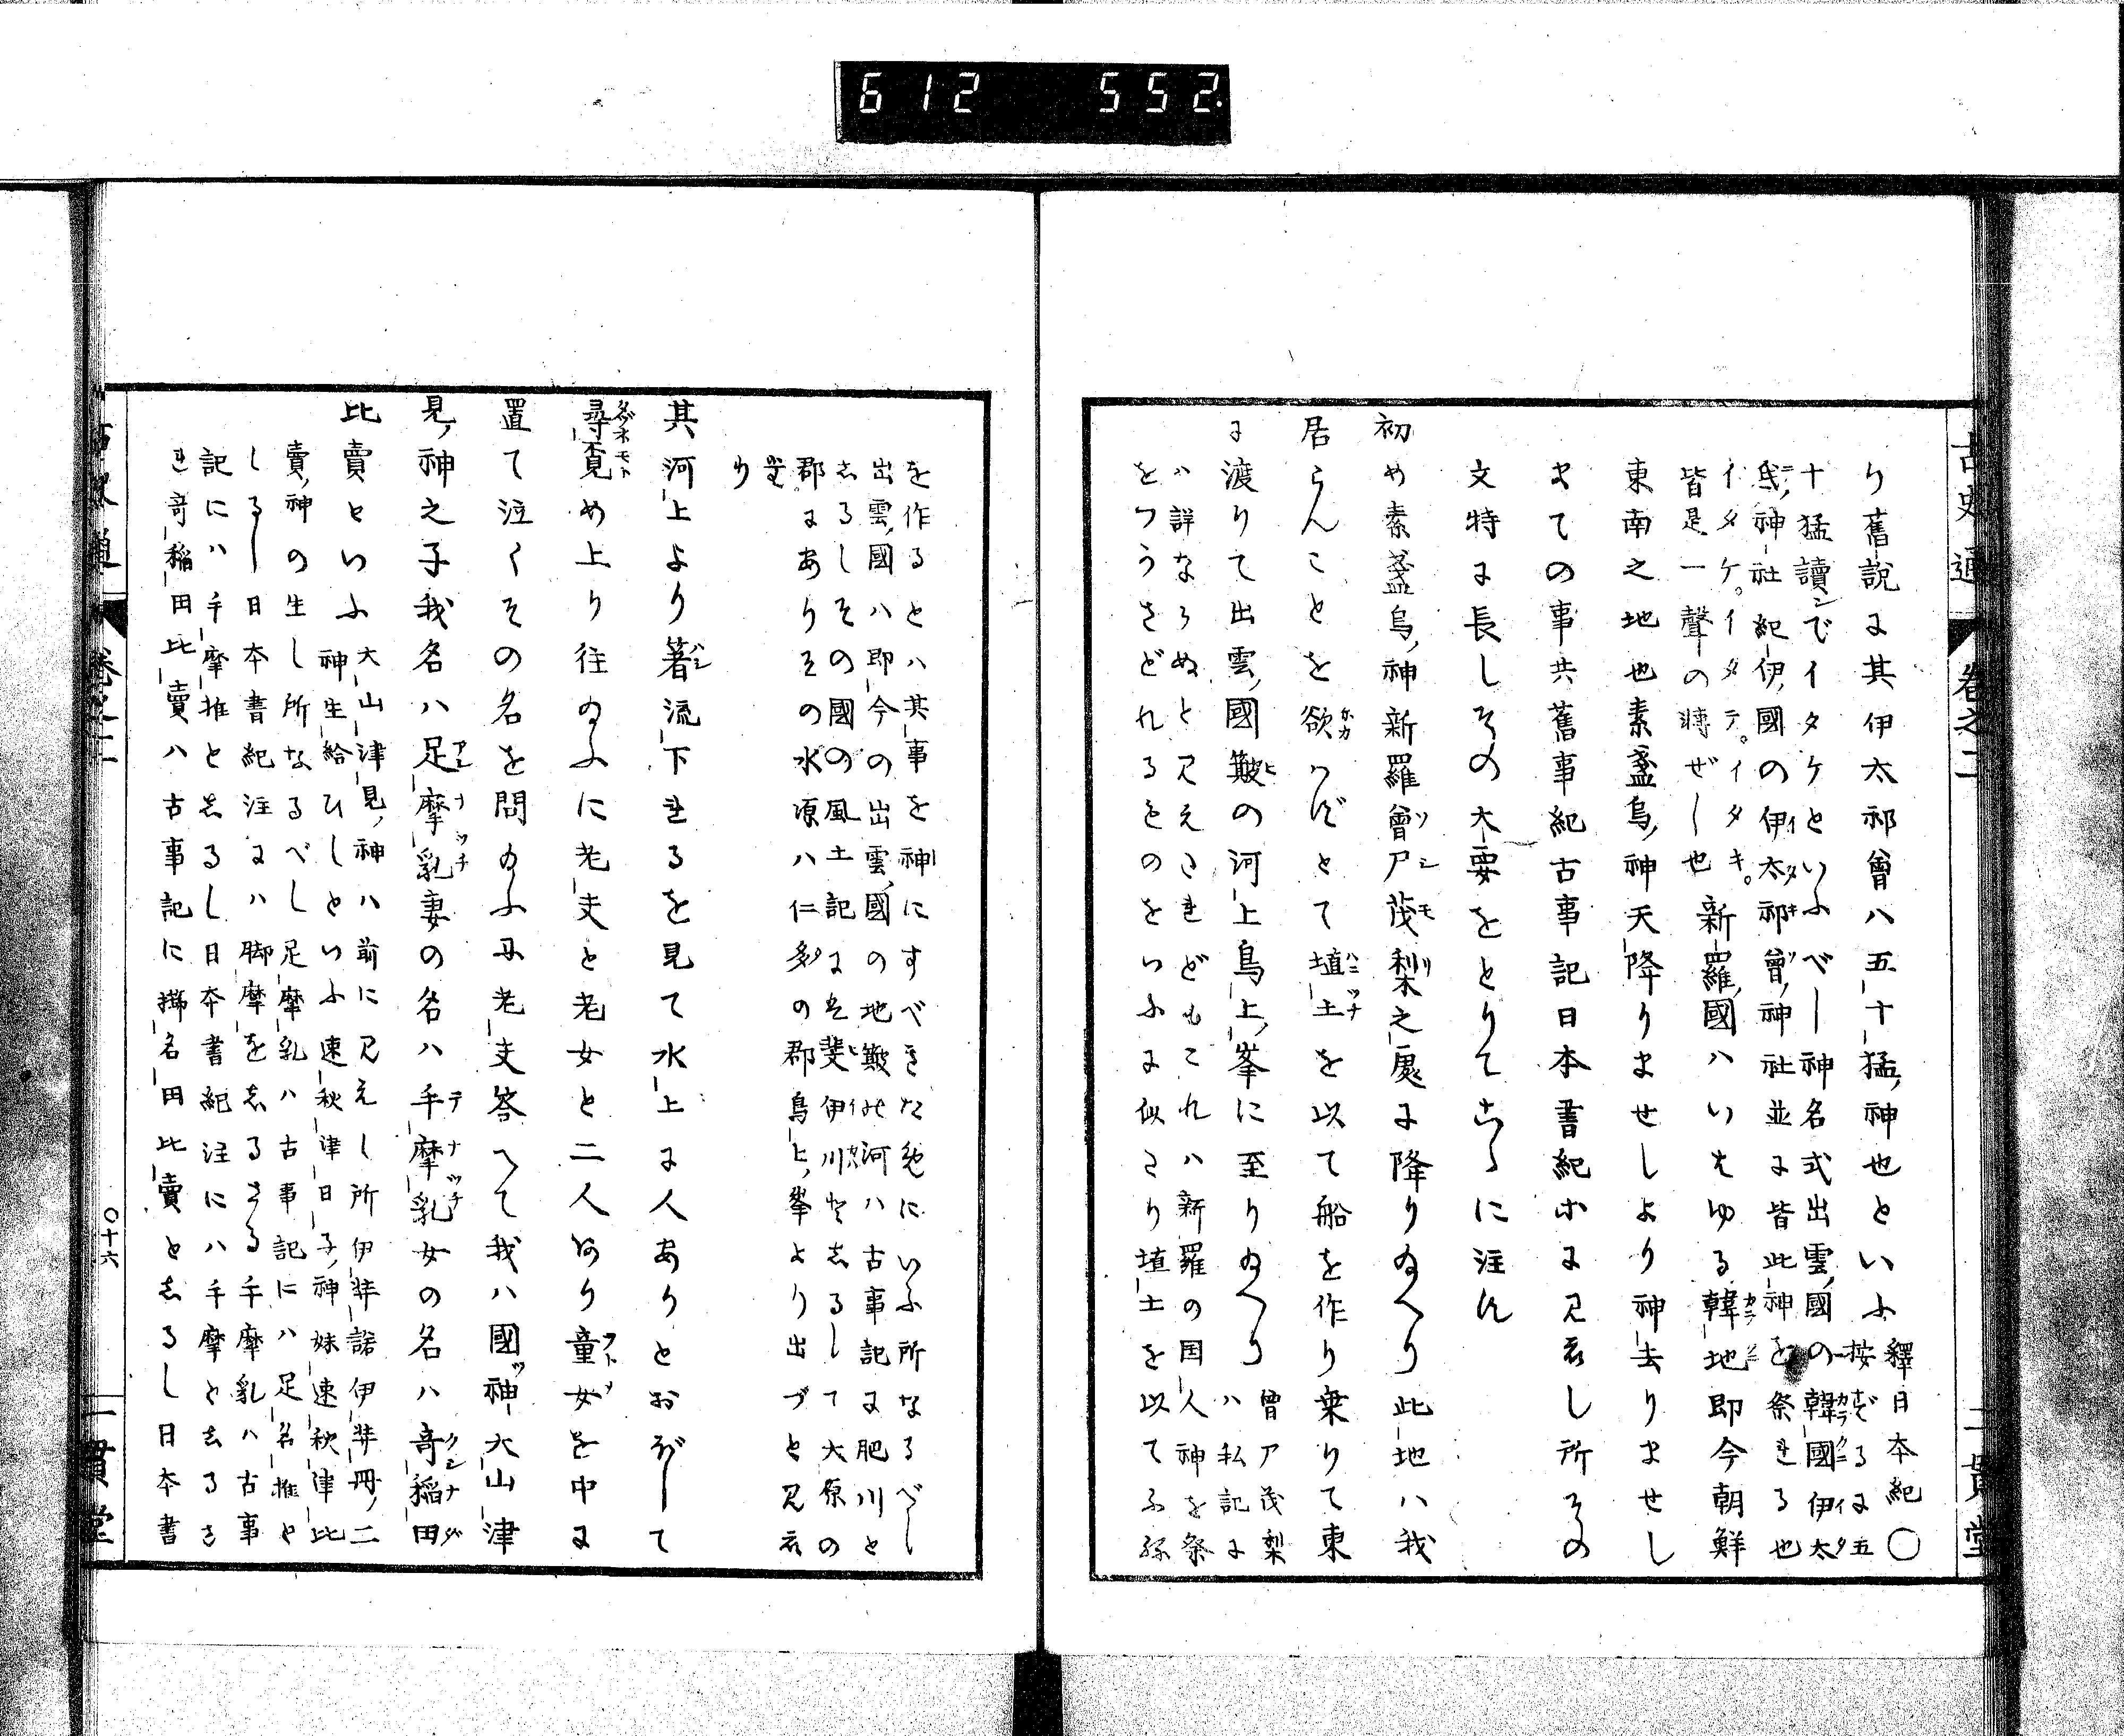 612 552.
古史通 卷之二 一貫堂
り舊說に其伊太祁曾ハ五十猛神也といふ釋日本紀〇
按ずるに五
十猛讀んでイタケといふべし神名式出雲國の韓國伊太
氐神社紀伊國の伊太祁曾神社並に皆此神を祭れる也
イタケ。イタテ。イタキ。
皆是一聲の轉ぜし也新羅國ハいはゆる韓地即今朝鮮
東南之地也素盞烏神天降りませしより神去りませし
までの事共舊事紀古事記日本書紀ホに見えし所その
文特に長しその大要をとりてこゝに注す
初め素盞烏神新羅曾尸茂梨之處に降り給へり此地ハ我
居らんことを欲せずとて埴土を以て船を作り乗りて東
に渡りて出雲國簸の河上鳥上峯に至り給へり
曾尸茂梨
ハ私記に
ハ詳ならぬと見えたれどもこれハ新羅の国人神を祭
をつうさどれるものをいふに似たり埴土を以てふね
を作るとハ其事を神にすべきためにいふ所なるべし
出雲國ハ即今の出雲國の地簸の河ハ古事記に肥川と
しるしその國の風土記には斐伊川としるして大原の
郡にありその水源ハ仁多の郡鳥上峯より出づと見え
たり
其河上より箸流下れるを見て水上に人ありとおぼして
尋覓め上り往給ふに老夫と老女と二人あり童女を中に
置て泣くその名を問給ふ時老夫答へて我ハ國神大山津
見神之子我名ハ足摩乳妻の名ハ手摩乳女の名ハ奇稲田
比賣といふ
大山津見神ハ前に見えし所伊弉諾伊弉冊二
神生給ひしといふ速秋津日子神妹速秋津比
賣神の生し所なるべし足摩乳ハ古事記にハ足名推と
しるし日本書紀注にハ脚摩をしるさる手摩乳ハ古事
記にハ手摩推としるし日本書紀注にハ手摩としるさ
れ奇稲田比賣ハ古事記に擳名田比賣としるし日本書
〇十六
一貫堂